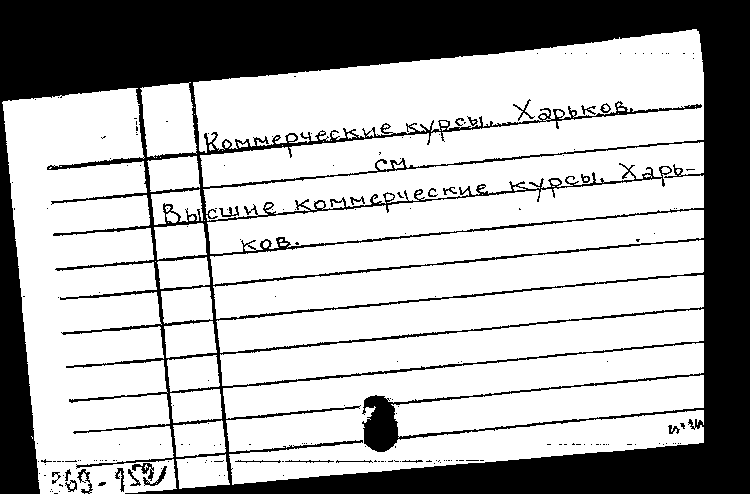 Коммерческие курсы. Харьков.
см.
Высшие коммерческие курсы. Харь-
ков.